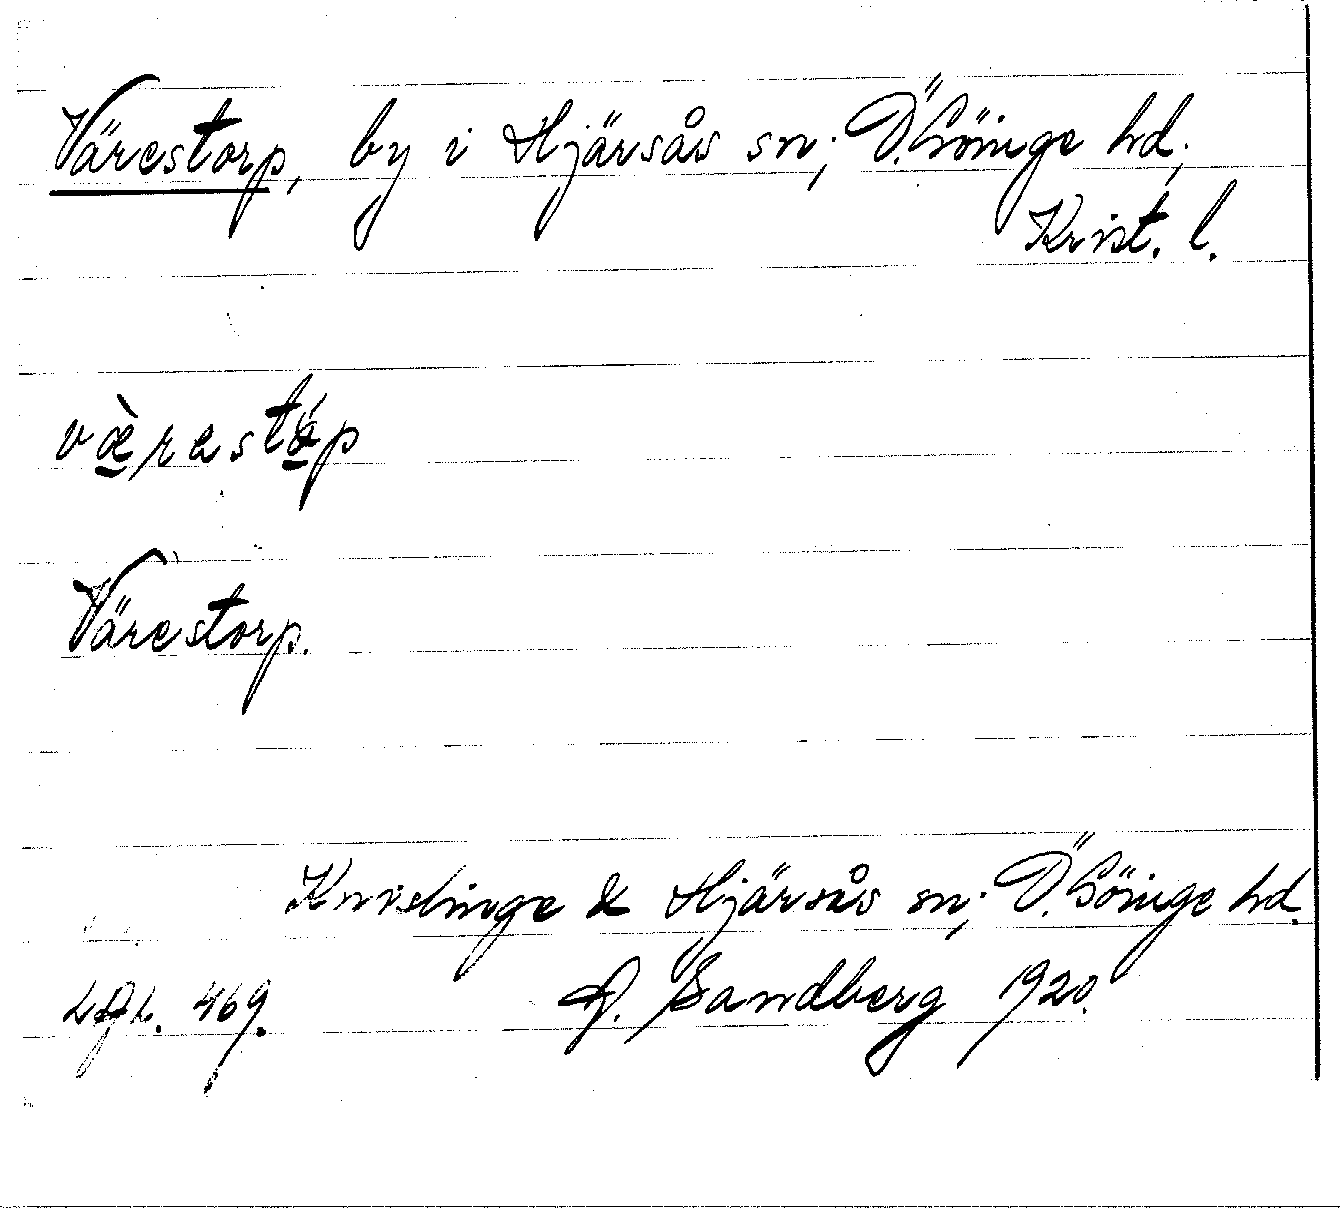 Värestorp, by i Hjärsås sn; Ö. Göinge hd,
Krist. l.
væ̀rastá̱p
Värestorp.
Knislinge & Hjärsås sn; Ö. Göinge hd.
469. Sandberg 1920.